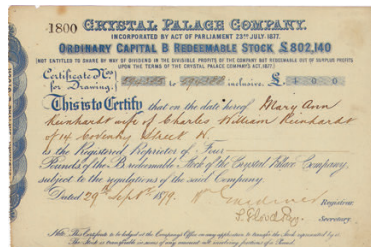 1800 CRYSTAL PALACE COMPANY.
INCORPORATED BY ACT OF PARLIAMENT 23RD JULY, 1877.
ORDINARY CAPITAL B REDEEMABLE STOCK £802,140
(NOT ENTITLED TO SHARE BY WAY OF DIVIDEND IN THE DIVISIBLE PROFITS OF THE COMPANY BUT REDEEMABLE OUT OF SURPLUS PROFITS
UPON THE TERMS OF THE CRYSTAL PALACE COMPANY'S ACT, 1877.)
Certificate Nos
for Drawing. to inclusive. £
This is to Certify that on the date hereof Mary Ann
Reinhardt wife of Charles William Reinhardt
of 14 Coventry Street W.
is the Registered Proprietor of Four
Pounds of the B redeemable Stock of the Crystal Palace Company,
subject to the regulations of the said Company.
Dated 29th Septr 1879. Registrar.
Secretary.
Note. This Certificate to be lodged at the Company's Office on any application to transfer the Stock represented by it.
The Stock is transferable in sums of any amount not involving fractions of a Pound.